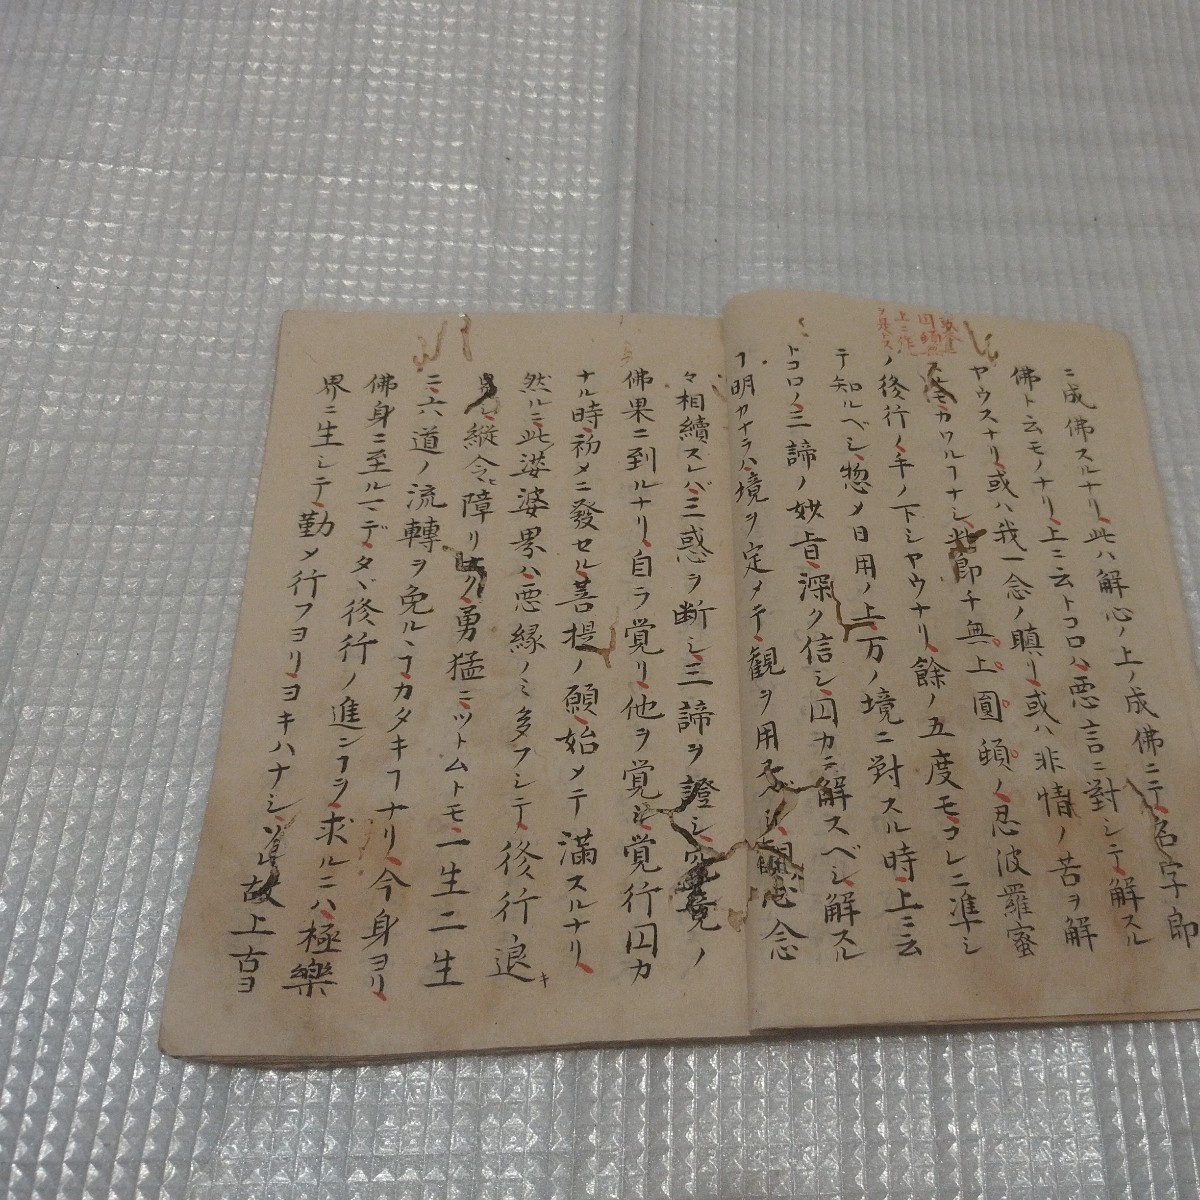 ニ成佛スルナリ此ハ解心ノ上ノ成佛ニテ名字即
佛ト云モノナリ上ニ云トコロハ悪言ニ對シテ解スル
ヤウスナリ或ハ我一念ノ瞋リ或ハ非情ノ苦ヲ解
スモカワルヿナシ即チ無上圓頓ノ忍波羅蜜
ノ後行ノ手ノ下シヤウナリ餘ノ五度モコレニ準シ
テ知ルベシ惣メ日用ノ上万ノ境ニ對スル時上ニ云
トコロノ三諦ノ妙旨深ク信シ因カニ解スベシ解スル
ヿ明カナラハ境ヲ定メテ観ヲ用念
々相續スレバ三惑ヲ断シ三諦ヲ證シ究竟ノ
佛果ニ到ルナリ自ラ覚リ他ヲ覚シ覚行因カ
ナル時初メニ發セル菩提ノ願始メテ満スルナリ
然ルニ此娑婆界ハ悪縁ノミ多フシテ修行ノ退キ
縦令ヒ障リ勇猛ニツトムトモ一生二生
ニ六道ノ流轉ヲ免ルヽヿカタキヿナリ今身ヨリ
佛身ニ至ルマデタヾ修行ノ進ンヿヲ求ルニハ極樂
界ニ生シテ勤メ行フヨリヨキハナシ故上古ヨ